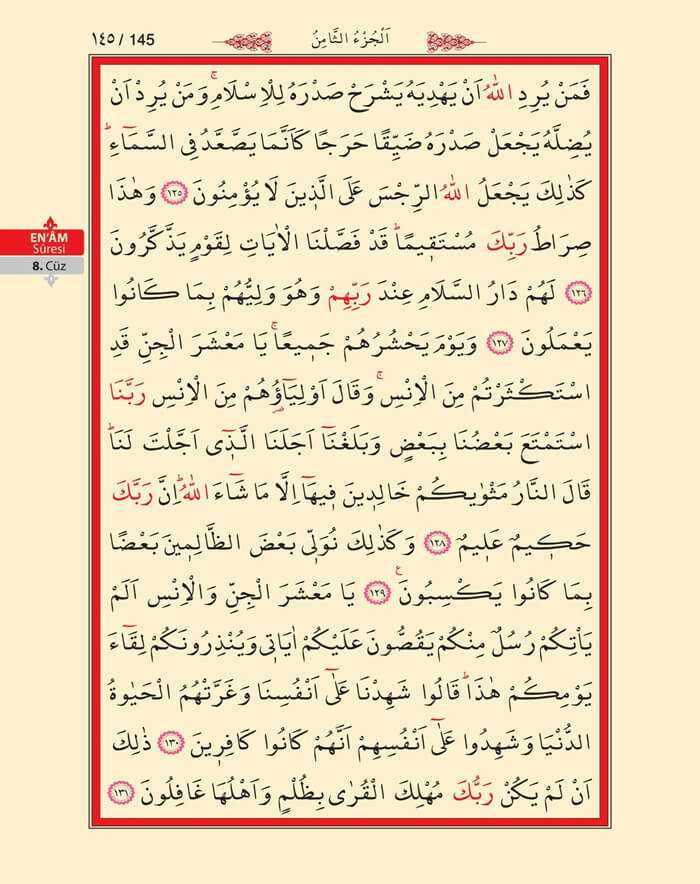 ١٤٥ / 145
اَلْجُزْءُ الثَّامِنُ
EN'ÂM
Sûresi
8. Cüz
فَمَنْ يُرِدِ اللّٰهُ اَنْ يَهْدِيَهُ يَشْرَحْ صَدْرَهُ لِلْاِسْلَامِۚ وَمَنْ يُرِدْ اَنْ
يُضِلَّهُ يَجْعَلْ صَدْرَهُ ضَيِّقًا حَرَجًا كَاَنَّمَا يَصَّعَّدُ فِي السَّمَٓاءِۜ
كَذٰلِكَ يَجْعَلُ اللّٰهُ الرِّجْسَ عَلَى الَّذٖينَ لَا يُؤْمِنُونَ ﴿١٢٥﴾ وَهٰذَا
صِرَاطُ رَبِّكَ مُسْتَقٖيمًاۜ قَدْ فَصَّلْنَا الْاٰيَاتِ لِقَوْمٍ يَذَّكَّرُونَ
﴿١٢٦﴾ لَهُمْ دَارُ السَّلَامِ عِنْدَ رَبِّهِمْ وَهُوَ وَلِيُّهُمْ بِمَا كَانُوا
يَعْمَلُونَ ﴿١٢٧﴾ وَيَوْمَ يَحْشُرُهُمْ جَمٖيعًاۚ يَا مَعْشَرَ الْجِنِّ قَدِ
اسْتَكْثَرْتُمْ مِنَ الْاِنْسِۚ وَقَالَ اَوْلِيَٓاؤُ۬هُمْ مِنَ الْاِنْسِ رَبَّنَا
اسْتَمْتَعَ بَعْضُنَا بِبَعْضٍ وَبَلَغْنَٓا اَجَلَنَا الَّذٖٓي اَجَّلْتَ لَنَاۜ
قَالَ النَّارُ مَثْوٰيكُمْ خَالِدٖينَ فٖيهَٓا اِلَّا مَا شَٓاءَ اللّٰهُۜ اِنَّ رَبَّكَ
حَكٖيمٌ عَلٖيمٌ ﴿١٢٨﴾ وَكَذٰلِكَ نُوَلّٖي بَعْضَ الظَّالِمٖينَ بَعْضًا
بِمَا كَانُوا يَكْسِبُونَ۟ ﴿١٢٩﴾ يَا مَعْشَرَ الْجِنِّ وَالْاِنْسِ اَلَمْ
يَأْتِكُمْ رُسُلٌ مِنْكُمْ يَقُصُّونَ عَلَيْكُمْ اٰيَاتٖي وَيُنْذِرُونَكُمْ لِقَٓاءَ
يَوْمِكُمْ هٰذَاۜ قَالُوا شَهِدْنَا عَلٰٓى اَنْفُسِنَا وَغَرَّتْهُمُ الْحَيٰوةُ
الدُّنْيَا وَشَهِدُوا عَلٰٓى اَنْفُسِهِمْ اَنَّهُمْ كَانُوا كَافِرٖينَ ﴿١٣٠﴾ ذٰلِكَ
اَنْ لَمْ يَكُنْ رَبُّكَ مُهْلِكَ الْقُرٰى بِظُلْمٍ وَاَهْلُهَا غَافِلُونَ ﴿١٣١﴾